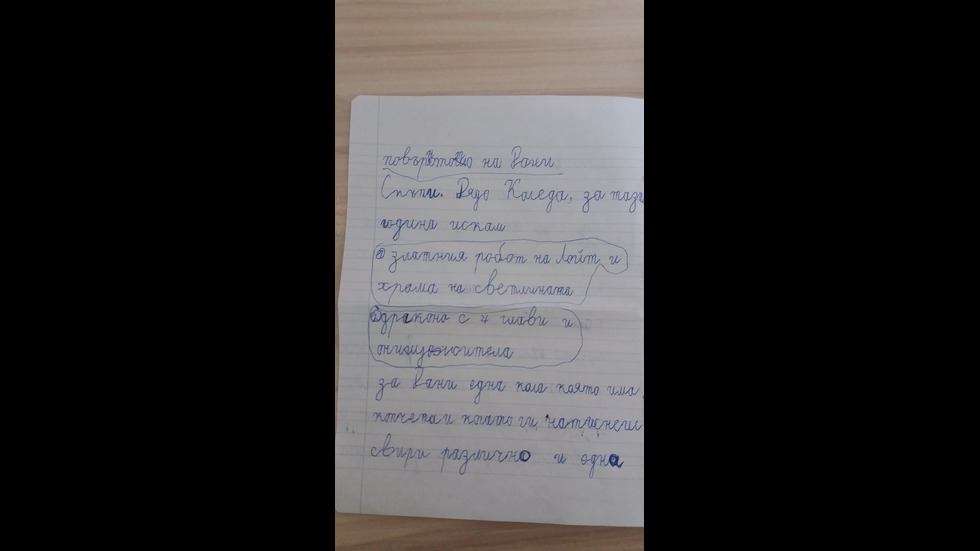 на Дани
Скъпи. Дядо Коледа, за тази
година искам
златния робот на Лойт и
храма на светлината
дракона с 4 глави и
за Дани една кола която има
копчета и когато ги натиснеш
свири различно и една